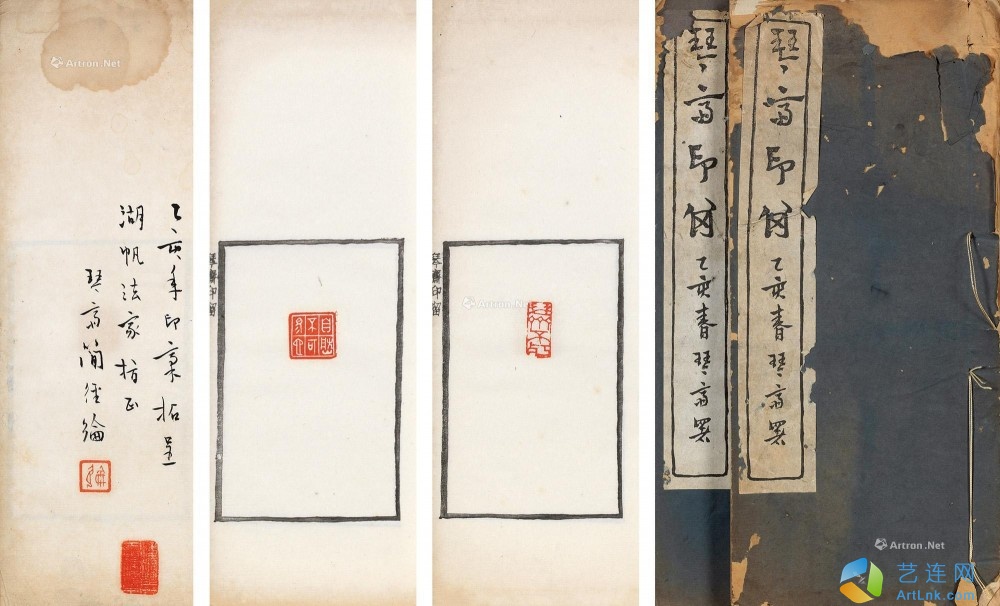 Artron.Net
乙亥年印稾拓呈
湖帆法家指正
琴斋簡经綸
琴齋印留
琴齋印留
Artron.Net
琴斋印留 乙亥春琴斋署
琴斋印留 乙亥春琴斋署
Artron.Net
艺连网
ArtLnk.com